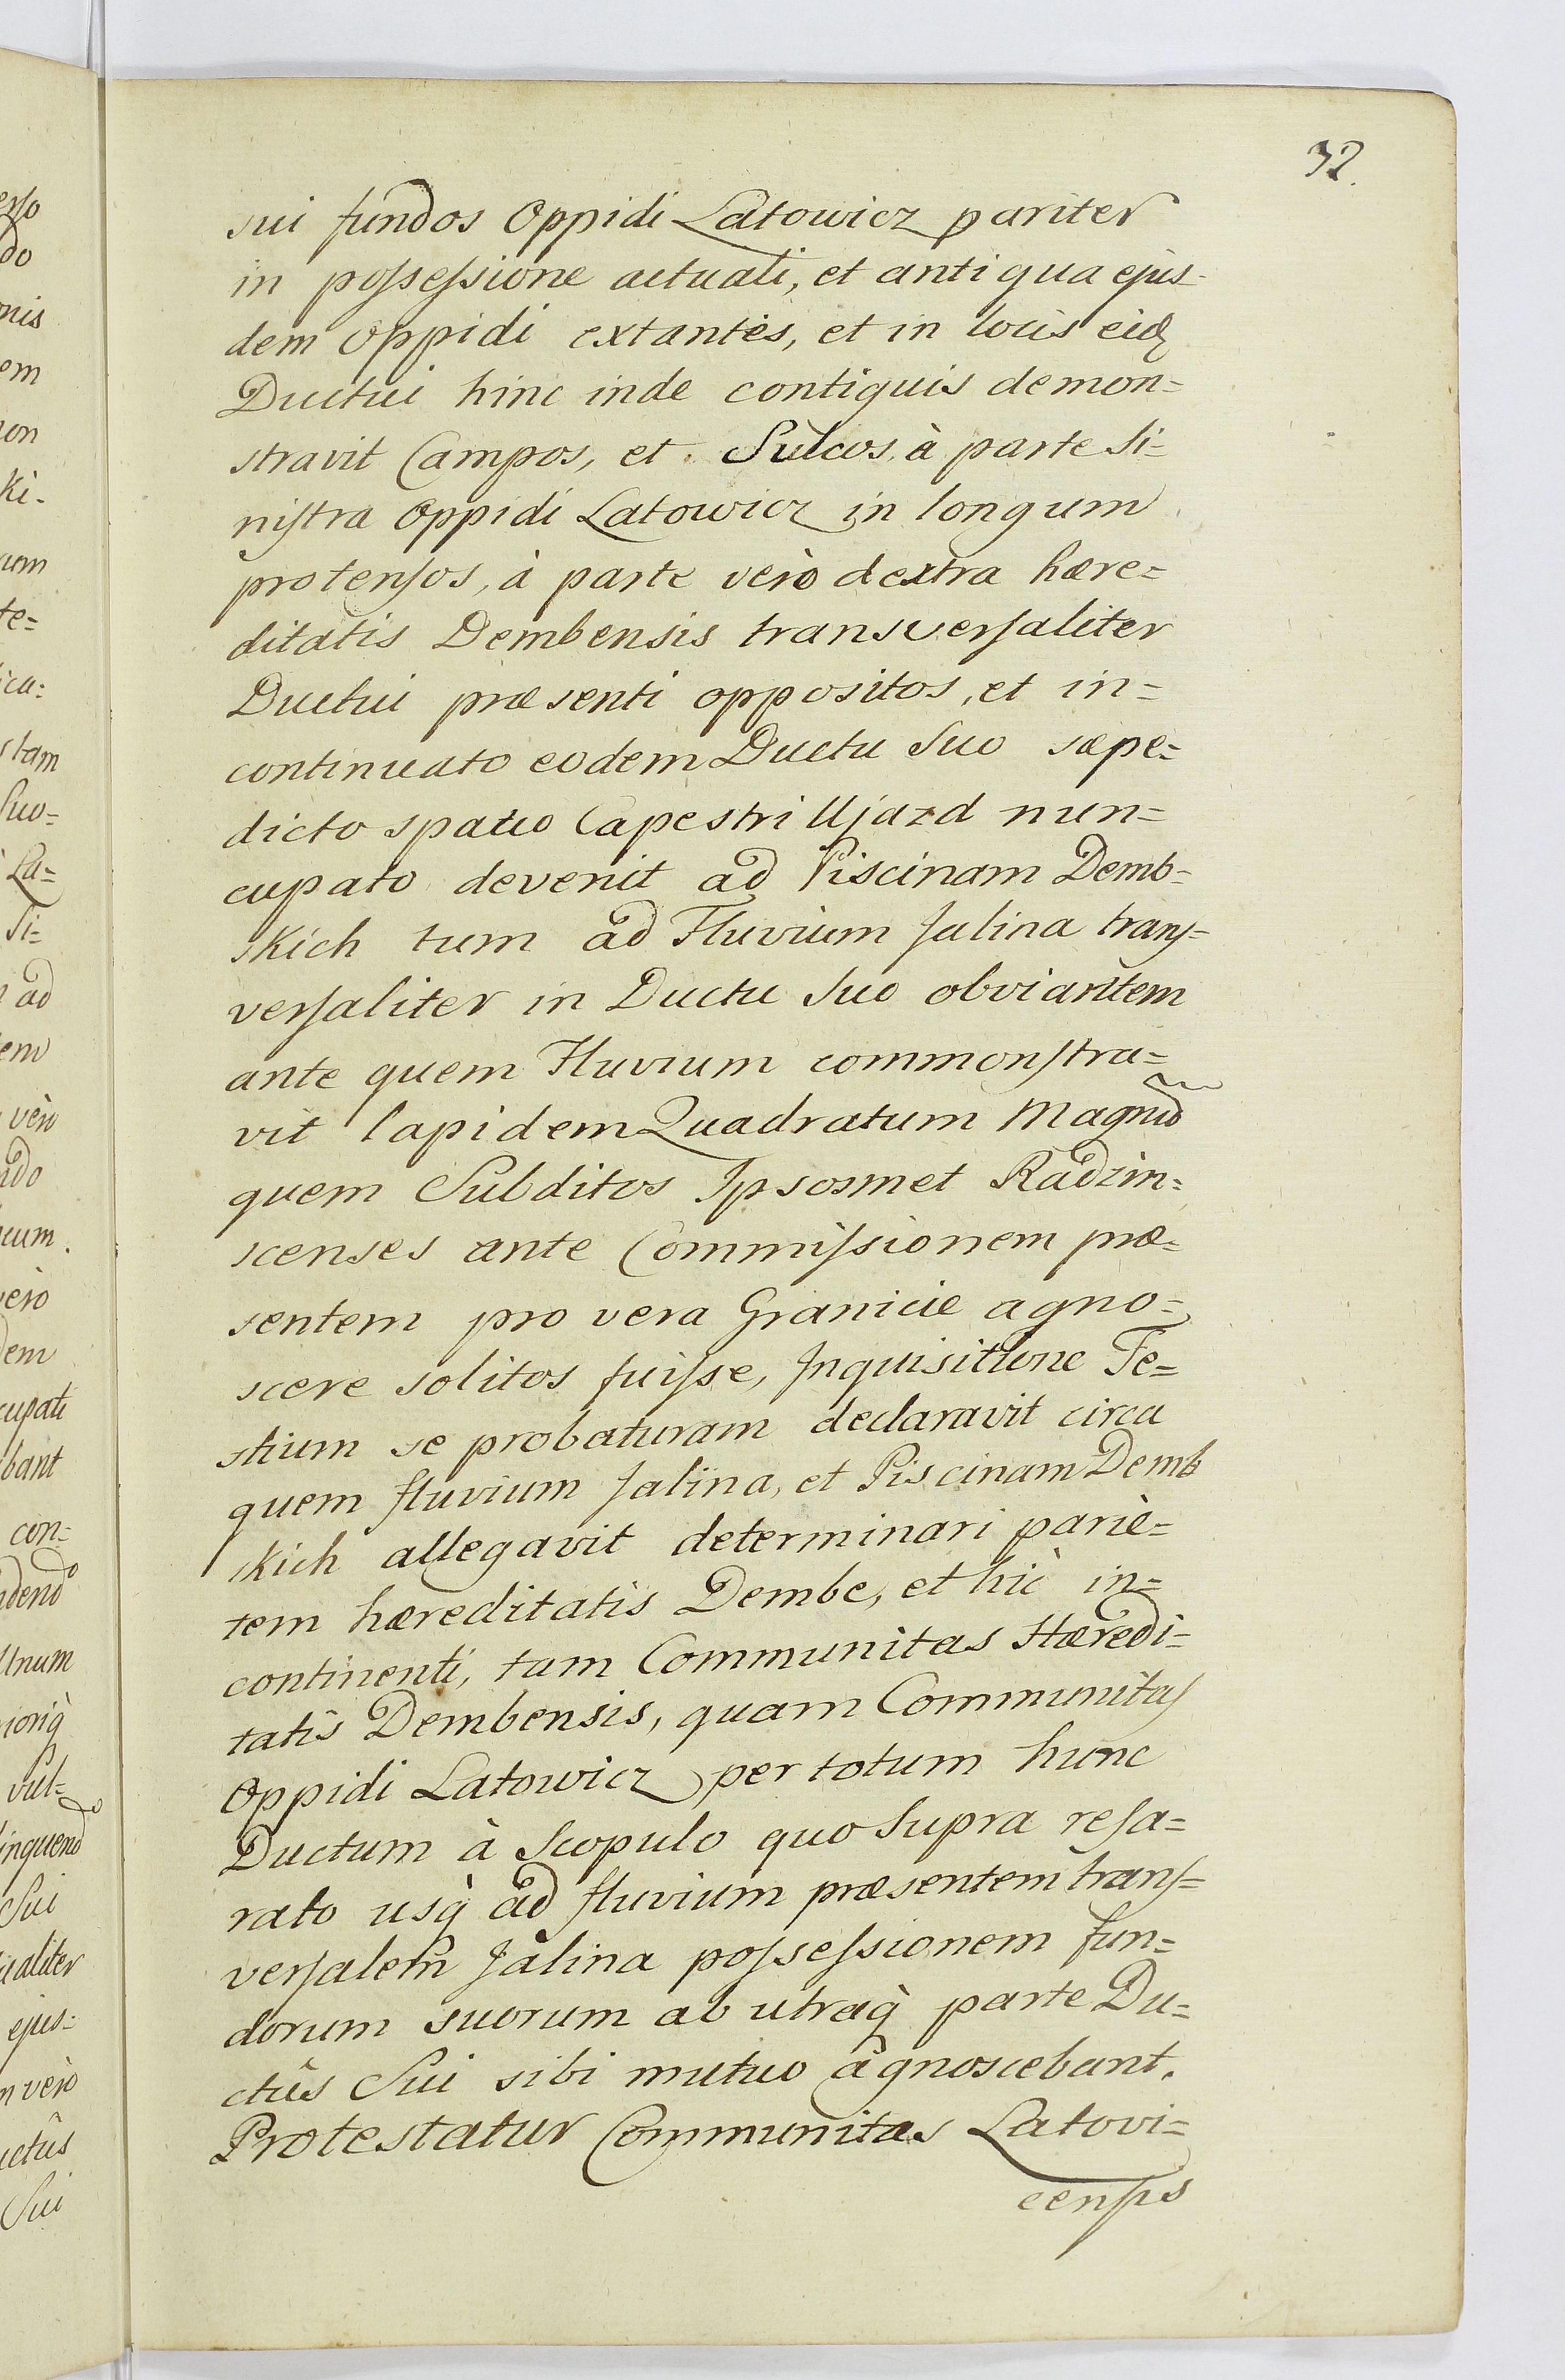 32.
sui fundos Oppidi Latowicz pariter
in possessione actuali, et antiqua ejus-
dem Oppidi extantes, et in locis eidq
Ductui hinc inde contiguis demon=
stravit Campos, et Sulcos, à parte Si=
nistra Oppidi Latowicz in longum
protensos, à parte verò dextra hære=
ditatis Dembensis transversaliter
Ductui præsenti oppositos, et in=
continuato eodem Ductu Suo sæpe=
dicto spatio Capestri Ujazd nun=
cupato devenit ad Piscinam Demb=
skich tum ad Fluvium Jalina trans=
versaliter in Ductu Suo obviantem
ante quem Fluvium commonstra=
vit lapidem Quadratum Magnũ
quem Subditos Ipsosmet Radzin=
scenses ante Commissionem præ=
sentem pro vera Granicie agno=
scere solitos fuisse, Inquisitione Te=
stium se probaturam declaravit circa
quem fluvium Jalina, et Piscinam Demb
skich allegavit determinari parie=
tem hæreditatis Dembe, et hic in=
continenti, tam Communitas Hæredi=
tatis Dembensis, quam Communitas
Oppidi Latowicz per totum hunc
Ductum à Scopulo quo Supra resa=
rato usq̀ ad fluvium præsentem trans=
versalem Jalina possessionem fun=
dorum suorum ab utraq̀ parte Du=
ctûs Sui sibi mutuo agnoscebant.
Protestatur Communitas Latovi=
censis